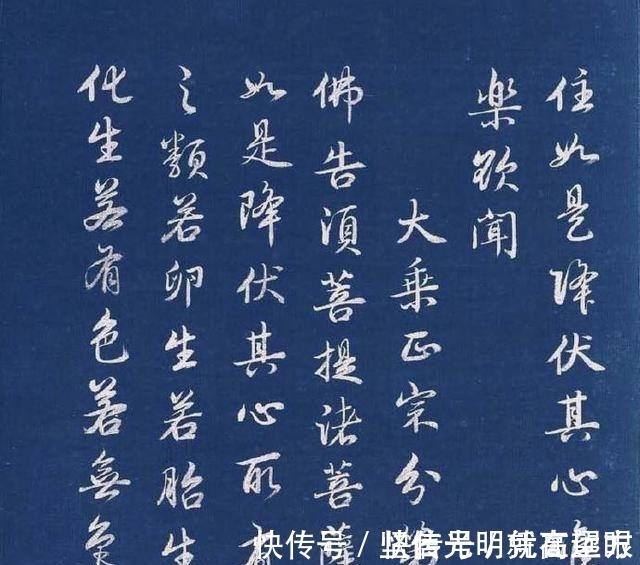 住如是降伏其心
樂欲聞
大乘正宗分
佛告須菩提諸菩薩
如是降伏其心所有
之類若卵生若胎生
化生若有色若無色
快传号/